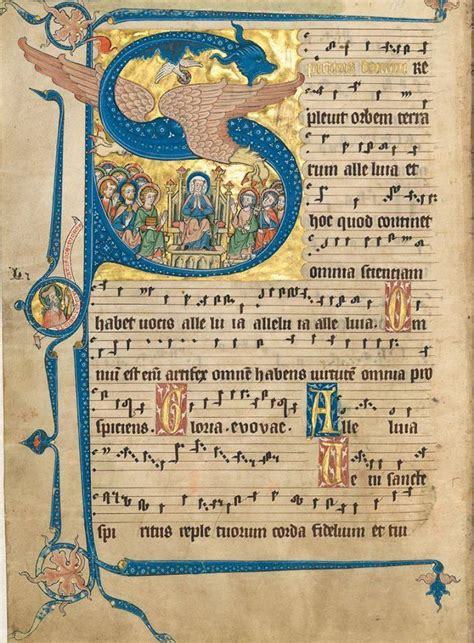 Spiritus domini Re
pleuit orbem terra
rum alle luia et
hoc quod continet
omnia scienciam
habet uocis alle lu ia allelu ia alle luia. Om
niū est enī artifex omnē habens uirtutē omnia pro
spiciens. Gloria. evovae. Alle luia
Ue ni sancte
spi ritus reple tuorum corda fidelium et tui